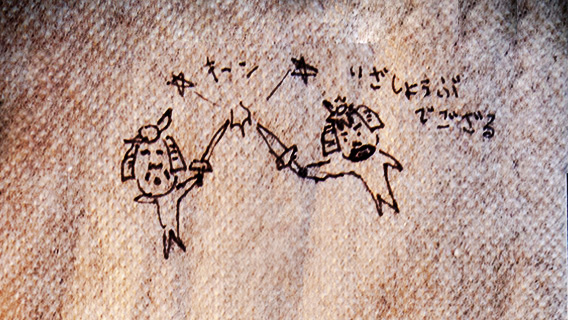 キーン
いざ しょうぶ
でござる